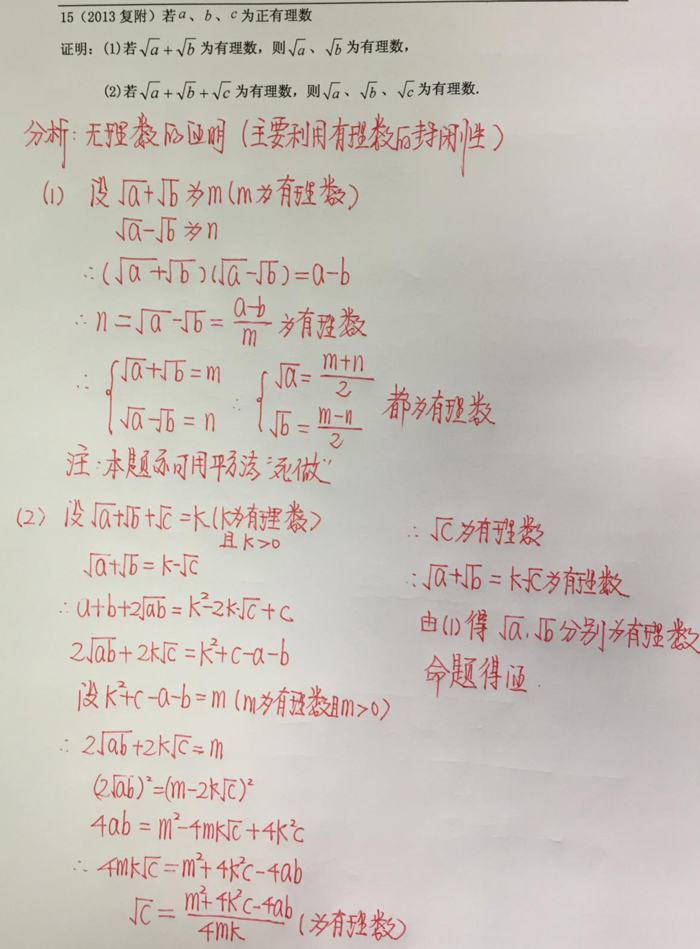 15（2013复附）若a、b、c为正有理数
证明：(1)若√a+√b为有理数，则√a、√b为有理数，
(2)若√a+√b+√c为有理数，则√a、√b、√c为有理数.
分析：无理数的证明（主要利用有理数的封闭性）
(1) 设√a+√b为m(m为有理数)
√a-√b为n
∴(√a+√b)(√a-√b)=a-b
∴n=√a-√b=(a-b)/m 为有理数
∴{√a+√b=m ∴{√a=(m+n)/2
√a-√b=n √b=(m-n)/2 都为有理数
注：本题亦可用平方法“死做”
(2) 设√a+√b+√c=k(k为有理数)
且k>0
√a+√b=k-√c
∴a+b+2√ab=k²-2k√c+c
2√ab+2k√c=k²+c-a-b
设k²+c-a-b=m(m为有理数且m>0)
∴2√ab+2k√c=m
(2√ab)²=(m-2k√c)²
4ab=m²-4mk√c+4k²c
∴4mk√c=m²+4k²c-4ab
√c=(m²+4k²c-4ab)/4mk (为有理数)
∴√c为有理数
∴√a+√b=k-√c为有理数
由(1)得√a、√b分别为有理数
命题得证.